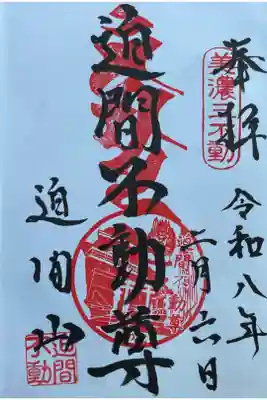 奉拝
美濃三不動
令和八年
二月六日
迫間不動尊
迫間不動尊
迫間山
迫間不動